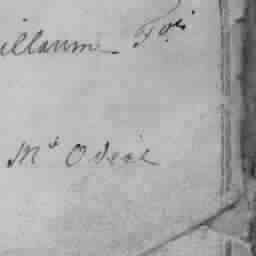 illaume Foi
Mt Odeal